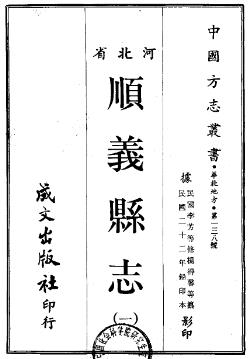 中國方志叢書·華北地方·第一三八號
據民國李芳等修楊得馨等纂
民國二十二年鉛印本影印
河北省
順義縣志
(一)
成文出版社印行